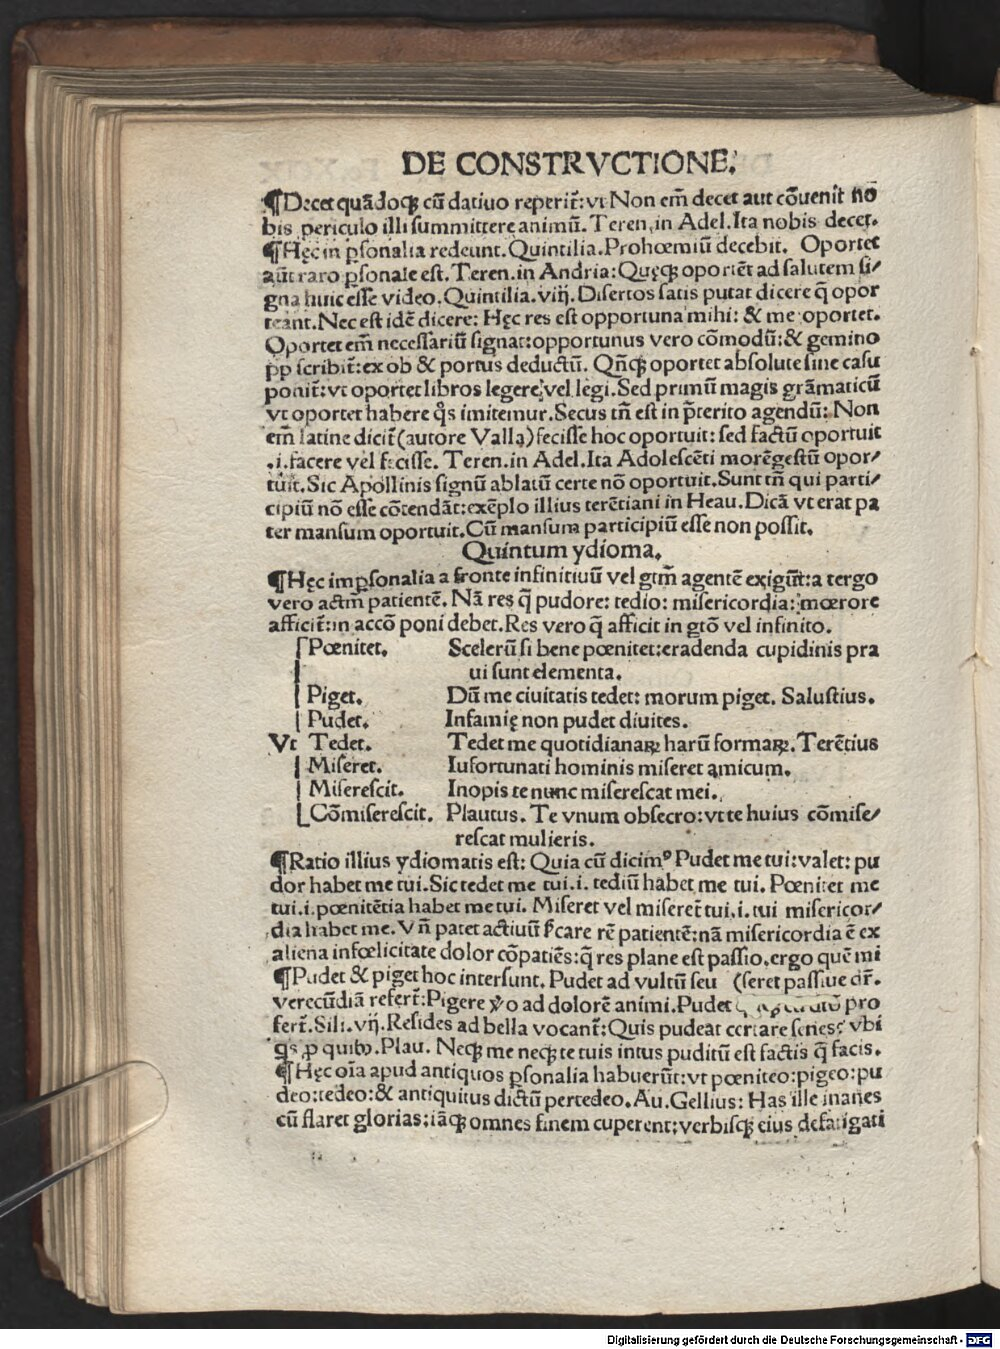 DE CONSTRVCTIONE.
¶Decet quādoqꝫ cū datiuo reperit̄: vt Non em̄ decet aut cōuenit no
bis periculo illi summittere animū. Teren. in Adel. Ita nobis decet.
¶Hęc in ꝑsonalia redeunt. Quintilia. Prohoemiū decebit. Oportet
aūt raro ꝑsonale est. Teren. in Andria: Quęcꝫ oportēt ad salutem si/
gna huic esse video. Quintilia. viij. Disertos satis putat dicere q̄ opor
teant. Nec est idē dicere: Hęc res est opportuna mihi: & me oportet.
Oportet em̄ necessariū signat: opportunus vero cōmodū: & gemino
pp scribit̄: ex ob & portus deductū. Qn̄cꝫ oportet absolute sine casu
ponit̄: vt oportet libros legere: vel legi. Sed primū magis grāmaticū
vt oportet habere q̊s imitemur. Secus tn̄ est in p̄terito agendū: Non
em̄ latine dicit̄ (autore Valla) fecisse hoc oportuit: sed factū oportuit
.i. facere vel fecisse. Teren. in Adel. Ita Adolescēti morēgestū opor/
tuit. Sic Apollinis signū ablatū certe nō oportuit. Sunt tn̄ qui parti/
cipiū nō esse cōtendāt: exēplo illius terētiani in Heau. Dicā vt erat pa
ter mansum oportuit. Cū mansum participiū esse non possit.
Quintum ydioma.
¶Hęc imꝑsonalia a fronte infinitiuū vel gtm̄ agentē exigūt: a tergo
vero actm̄ patientē. Nā res q̄ pudore: tedio: misericordia: mœrore
afficit̄: in accō poni debet. Res vero q̄ afficit in gtō vel infinito.
Pœnitet. Scelerū si bene pœnitet: eradenda cupidinis pra
ui sunt elementa.
Piget. Dū me ciuitatis tedet: morum piget. Salustius.
Pudet. Infamię non pudet diuites.
Vt Tedet. Tedet me quotidianaꝝ harū formaꝝ. Terētius
Miseret. Iufortunati hominis miseret amicum.
Miserescit. Inopis te nunc miserescat mei.
Cōmiserescit. Plautus. Te vnum obsecro: vt te huius cōmise/
rescat mulieris.
¶Ratio illius ydiomatis est: Quia cū dicimꝰ Pudet me tui: valet: pu
dor habet me tui. Sic tedet me tui .i. tediū habet me tui. Pœnitet me
tui .i. pœnitētia habet me tui. Miseret vel miseret̄ tui .i. tui misericor/
dia habet me. Vn̄ patet actiuū f̄care rē patientē: nā misericordia ē ex
aliena infœlicitate dolor cōpatiēs: q̄ res plane est passio. ergo quē mi
¶Pudet & piget hoc intersunt. Pudet ad vultū seu (seret passiue dr̄.
verecūdiā refert̄: Pigere ꝟo ad dolorē animi. Pudet pro
fert̄. Sili. vij. Resides ad bella vocant̄: Quis pudeat certare senes: vbi
qs ꝓ quibꝰ. Plau. Neqꝫ me neqꝫ te tuis intus puditū est factis q̄ facis.
¶Hęc oīa apud antiquos ꝑsonalia habuerūt: vt pœniteo: pigeo: pu
deo: tedeo: & antiquitus dictū pertedeo. Au. Gellius: Has ille inanes
cū flaret glorias: iāqꝫ omnes finem cuperent: verbisqꝫ eius defatigati
Digitalisierung gefördert durch die Deutsche Forschungsgemeinschaft - DFG